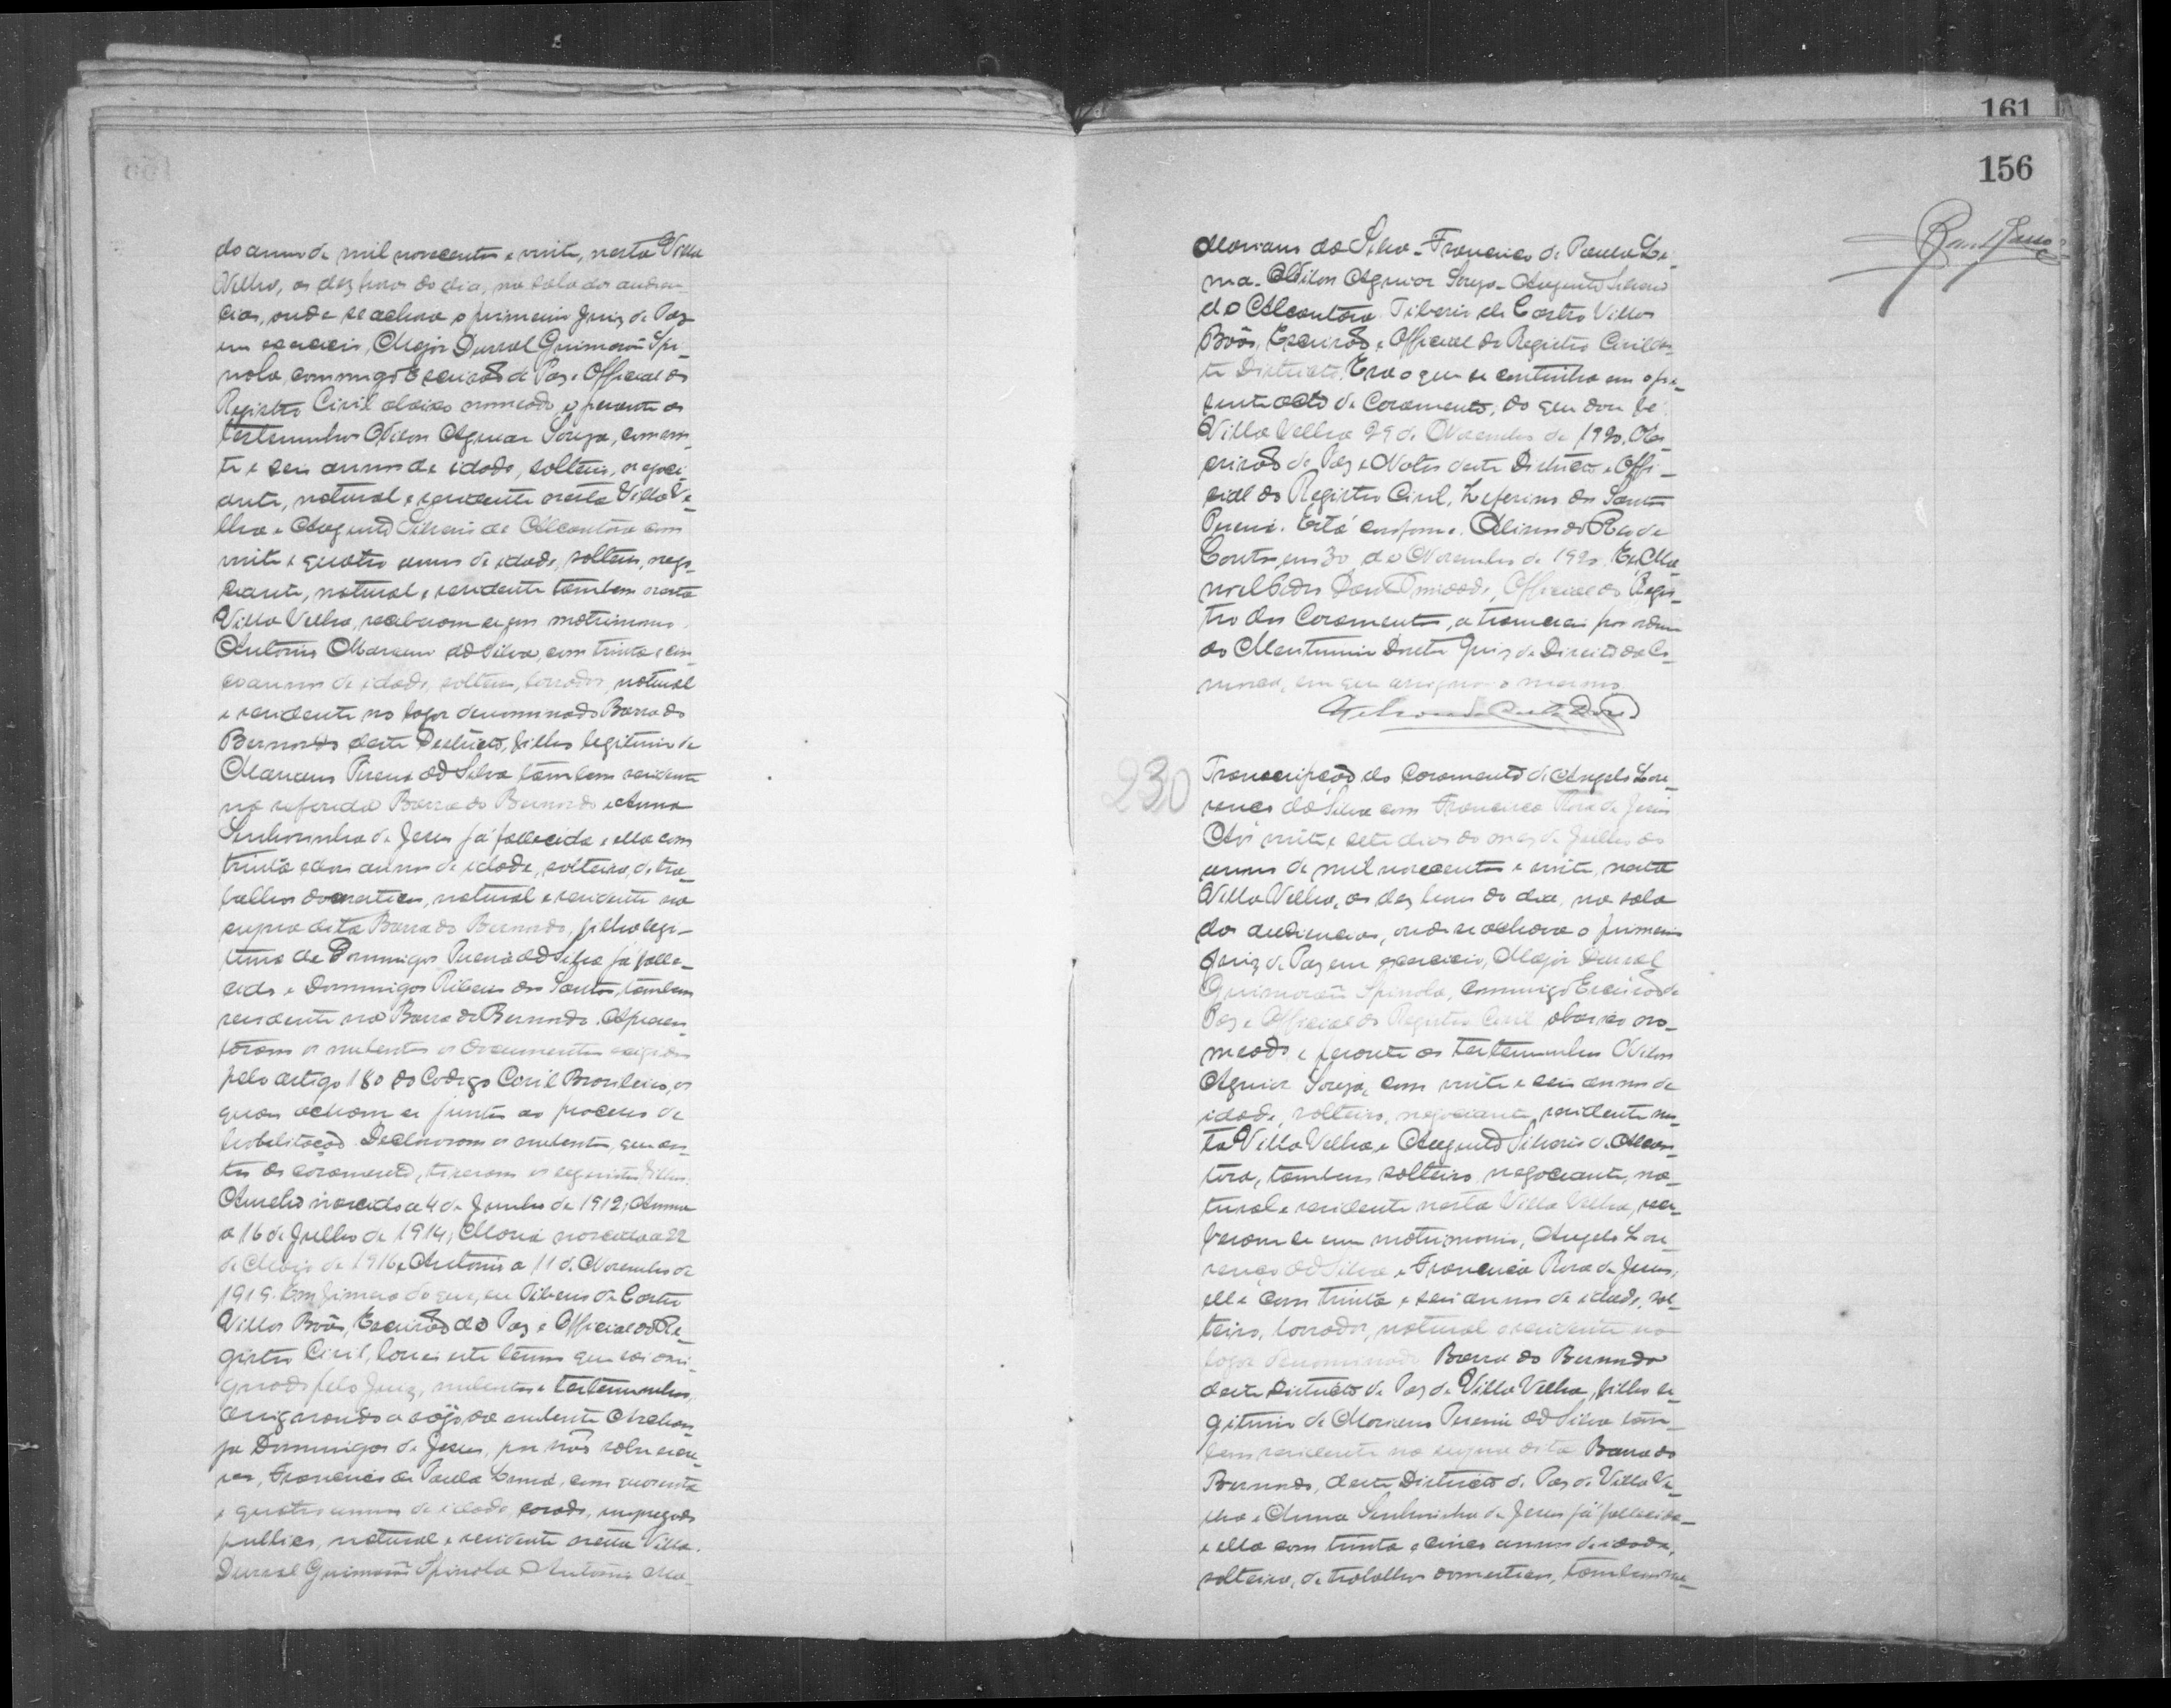 do anno de mil novecentos e vinte, nesta Villa
Velha, as dez horas do dia, na sala das audien-
cias, onde se achava o primeiro Juiz de Paz
em exercicio, Major Durval Guimarães Spi-
nola, commigo Escrivão de Paz e Official do
Registro Civil abaixo nomeado, e perante as
testemunhas Nilon Aguiar Souza, com vin-
te e seis annos de idade, solteiro, negoci-
ante, natural e residente nesta Villa Ve-
lha e Augusto Silverio de Alcantara com
vinte e quatro annos de idade, solteiro, nego-
ciante, natural e residente tambem nesta
Villa Velha, receberam-se em matrimonio
Antonio Mariano da Silva, com trinta e cin-
co annos de idade, solteiro, lavrador, natural
e residente no logar denominado Barra do
Bernardo deste Districto, filho legitimo de
Mariano Pereira da Silva tambem residente
na referida Barra do Bernardo e Anna
Senhorinha de Jesus já fallecida e ella com
trinta e dois annos de idade, solteira, de tra-
balhos domesticos, natural e residente na
supra dita Barra do Bernardo, filha legi-
tima de Domingos Pereira da Silva já falle-
cido e Domingas Ribeiro dos Santos, tambem
residente na Barra do Bernardo. Apresen-
taram os nubentes os documentos exigidos
pelo artigo 180 do Codigo Civil Brasileiro, os
quaes acham-se juntos ao processo de
habilitação. Declararam os nubentes, que an-
tes do casamento, tiveram os seguintes filhos:
Amelia nascida a 4 de Junho de 1912, Anna
a 16 de Julho de 1914, Maria nascida a 22
de Março de 1916 e Antonio a 11 de Novembro de
1919. Em firmeza do que, eu Tiberio de Castro
Villas Bôas, Escrivão de Paz e Official do Re-
gistro Civil, lavrei este termo que vai assi-
gnado pelo Juiz, nubentes e testemunhas,
assignando a rogo da nubente
Domingas de Jesus, por não saber escre-
ver, Francisco de Paula Lima, com quarenta
e quatro annos de idade, casado, empregado
publico, natural e residente nesta Villa.
Durval Guimarães Spinola Antonio Ma-
161
156
Mariano da Silva - Francisco de Paula Li-
ma. Nilon Aguiar Souza - Augusto Silverio
de Alcantara Tiberio de Castro Villas
Bôas, Escrivão e Official do Registro Civil des-
te Districto. Era o que se continha em o pre-
sente acto de Casamento, do que dou fé.
Villa Velha 29 de Novembro de 1920. O Es-
crivão de Paz e Notas deste Districto e Offi-
cial do Registro Civil, Zeferino dos Santos
Pereira. Está conforme. Rio de
Contas, em 30 de Novembro de 1920. Eu, Ma-
noel Trindade, Official do Regis-
tro dos Casamentos, a transcrevi por ordem
do Meretissimo Doutor Juiz de Direito da Co-
marca, em que assignou o mesmo
230
Transcripção do Casamento de Angelo Lou-
renço da Silva com Francisca Rosa de Jesus
Aos vinte e sete dias do mez de Julho do
anno de mil novecentos e vinte, nesta
Villa Velha, as dez horas do dia, na sala
das audiencias, onde se achava o primeiro
Juiz de Paz em exercicio, Major Durval
Guimarães Spinola, commigo Escrivão de
Paz e Official do Registro Civil abaixo no-
meado e perante as testemunhas Nilon
Aguiar Souza, com vinte e seis annos de
idade, solteiro, negociante, residente nes-
ta Villa Velha e Augusto Silverio de Alcan-
tara, tambem solteiro, negociante, na-
tural e residente nesta Villa Velha, rece-
beram-se em matrimonio, Angelo Lou-
renço da Silva e Francisca Rosa de Jesus,
elle com trinta e seis annos de idade, sol-
teiro, lavrador, natural e residente no
logar denominado Barra do Bernardo
deste Districto de Paz de Villa Velha, filho le-
gitimo de Mariano Pereira da Silva tam-
bem residente na supra dita Barra do
Bernardo, deste Districto de Paz de Villa Ve-
lha e Anna Senhorinha de Jesus já fallecida
e ella com trinta e cinco annos de idade,
solteira, de trabalhos domesticos, tambem na-